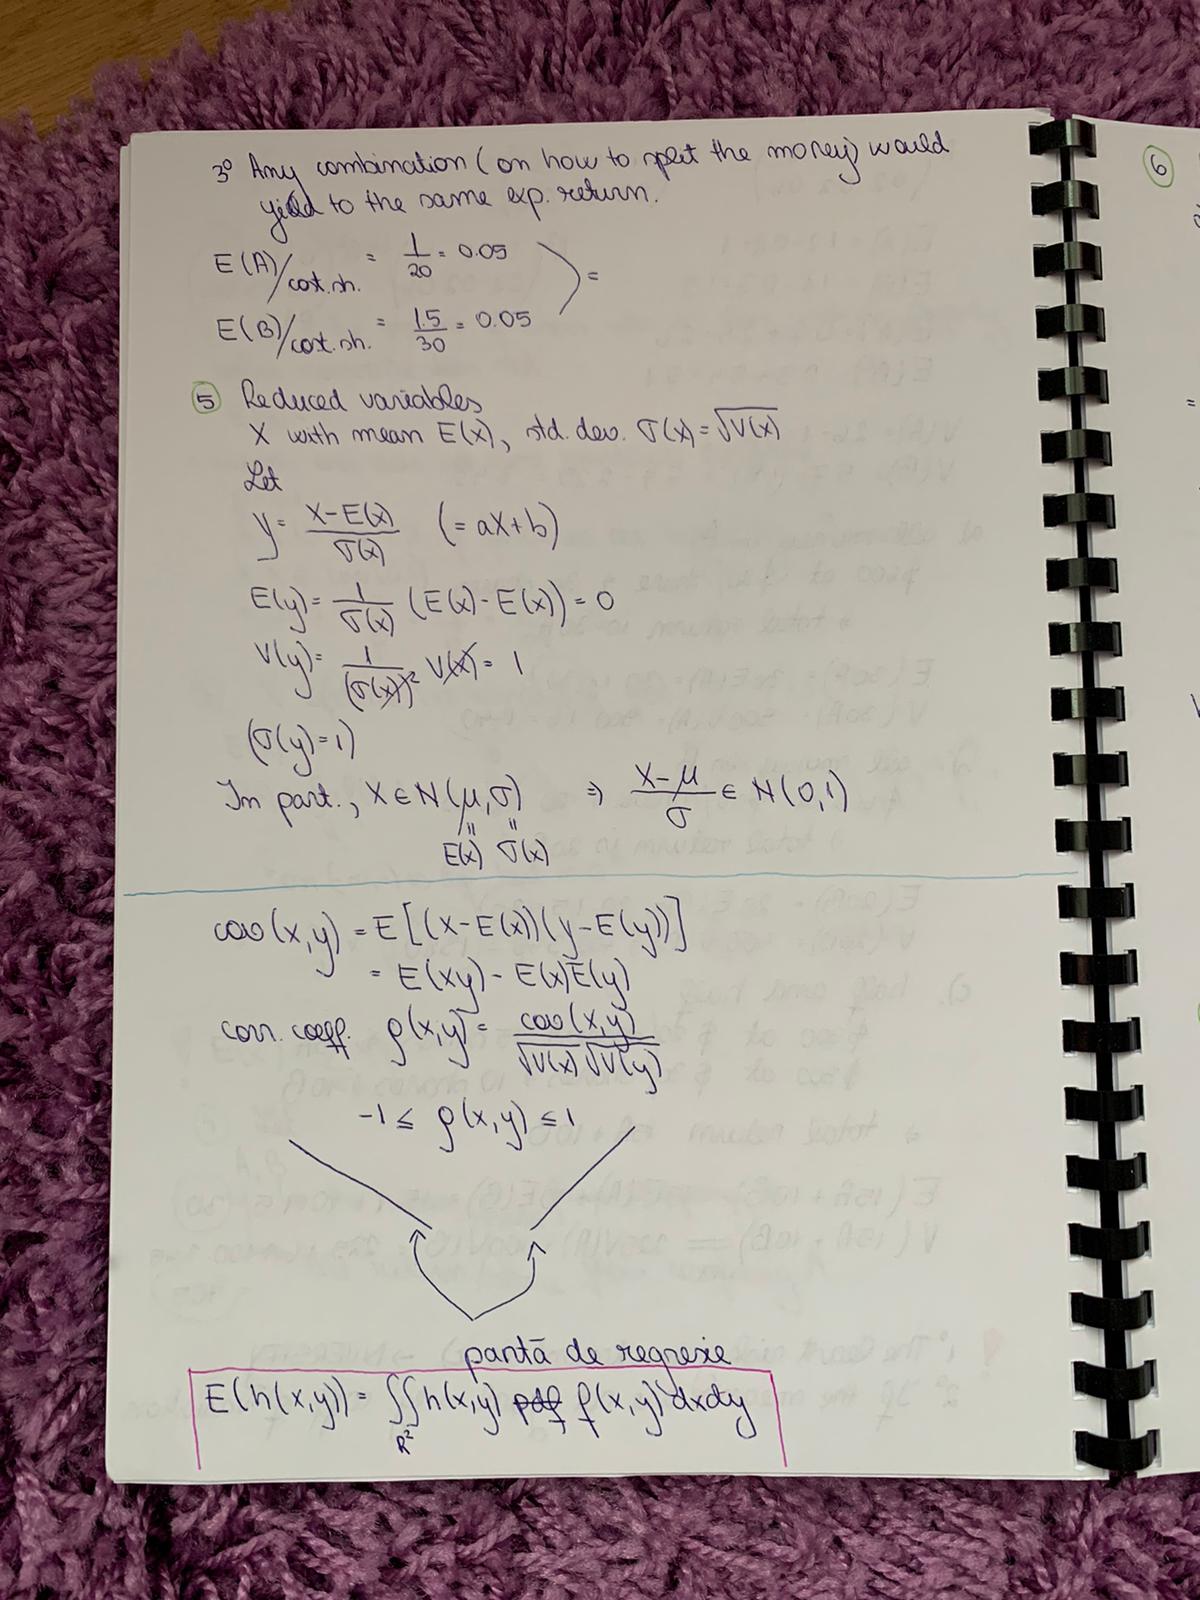 3° Any combination (on how to split the money) would
yield to the same exp. return.
E(A)/cost.sh. = 1/20 = 0.05
=
E(B)/cost.sh. = 1.5/30 = 0.05
5 Reduced variables
X with mean E(X), std. dev. σ(X) = √V(X)
Let
Y = (X-E(X))/σ(X) (= aX+b)
E(Y) = 1/σ(X) (E(X) - E(X)) = 0
V(Y) = 1/(σ(X))² V(X) = 1
(σ(Y)=1)
In part., X ∈ N(μ,σ) ⇒ (X-μ)/σ ∈ N(0,1)
" "
E(X) σ(X)
cov(X,Y) = E[(X-E(X))(Y-E(Y))]
= E(XY) - E(X)E(Y)
corr. coeff. ρ(X,Y) = cov(X,Y)/(√V(X) √V(Y))
-1 ≤ ρ(X,Y) ≤ 1
pantă de regresie
E(h(x,y)) = ∬ h(x,y) pdf f(x,y) dxdy
R²
6
=